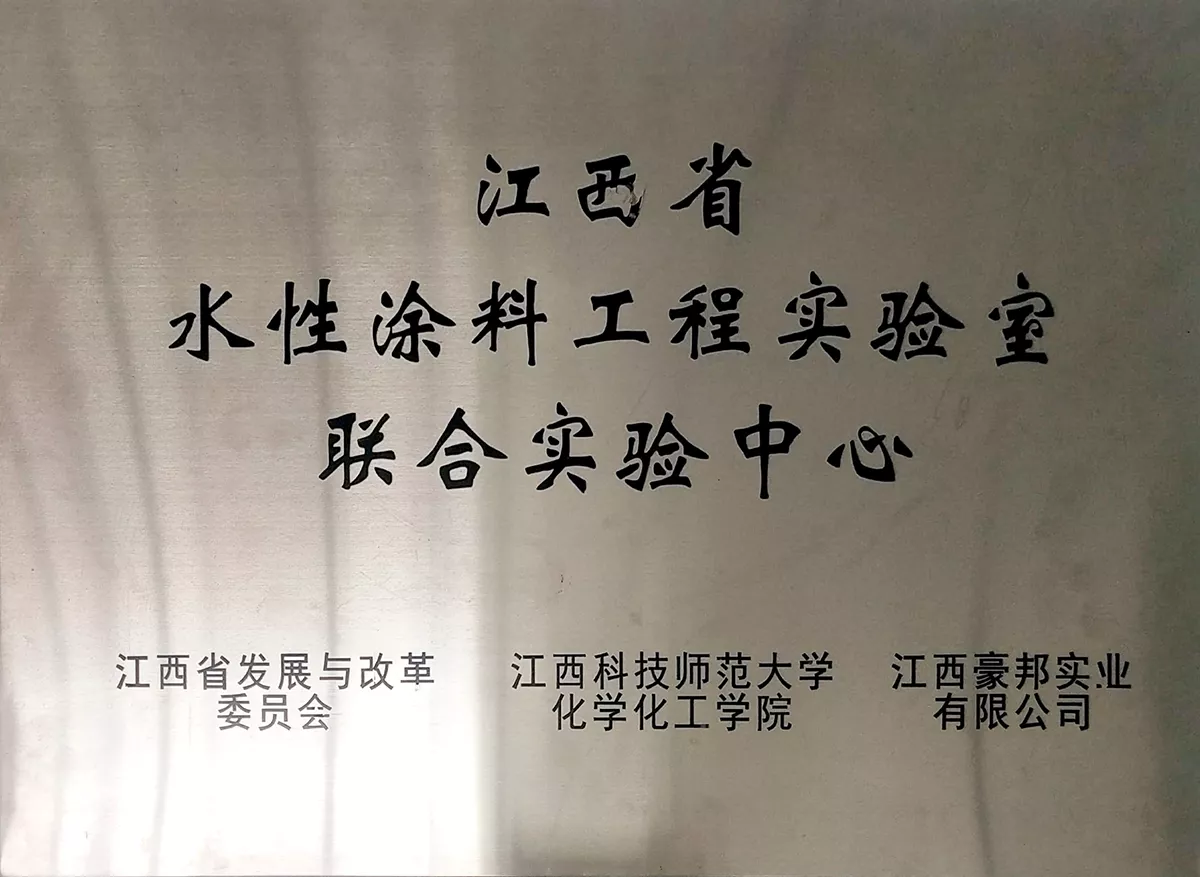 江西省
水性涂料工程实验室
联合实验中心
江西省发展与改革
委员会
江西科技师范大学
化学化工学院
江西豪邦实业
有限公司